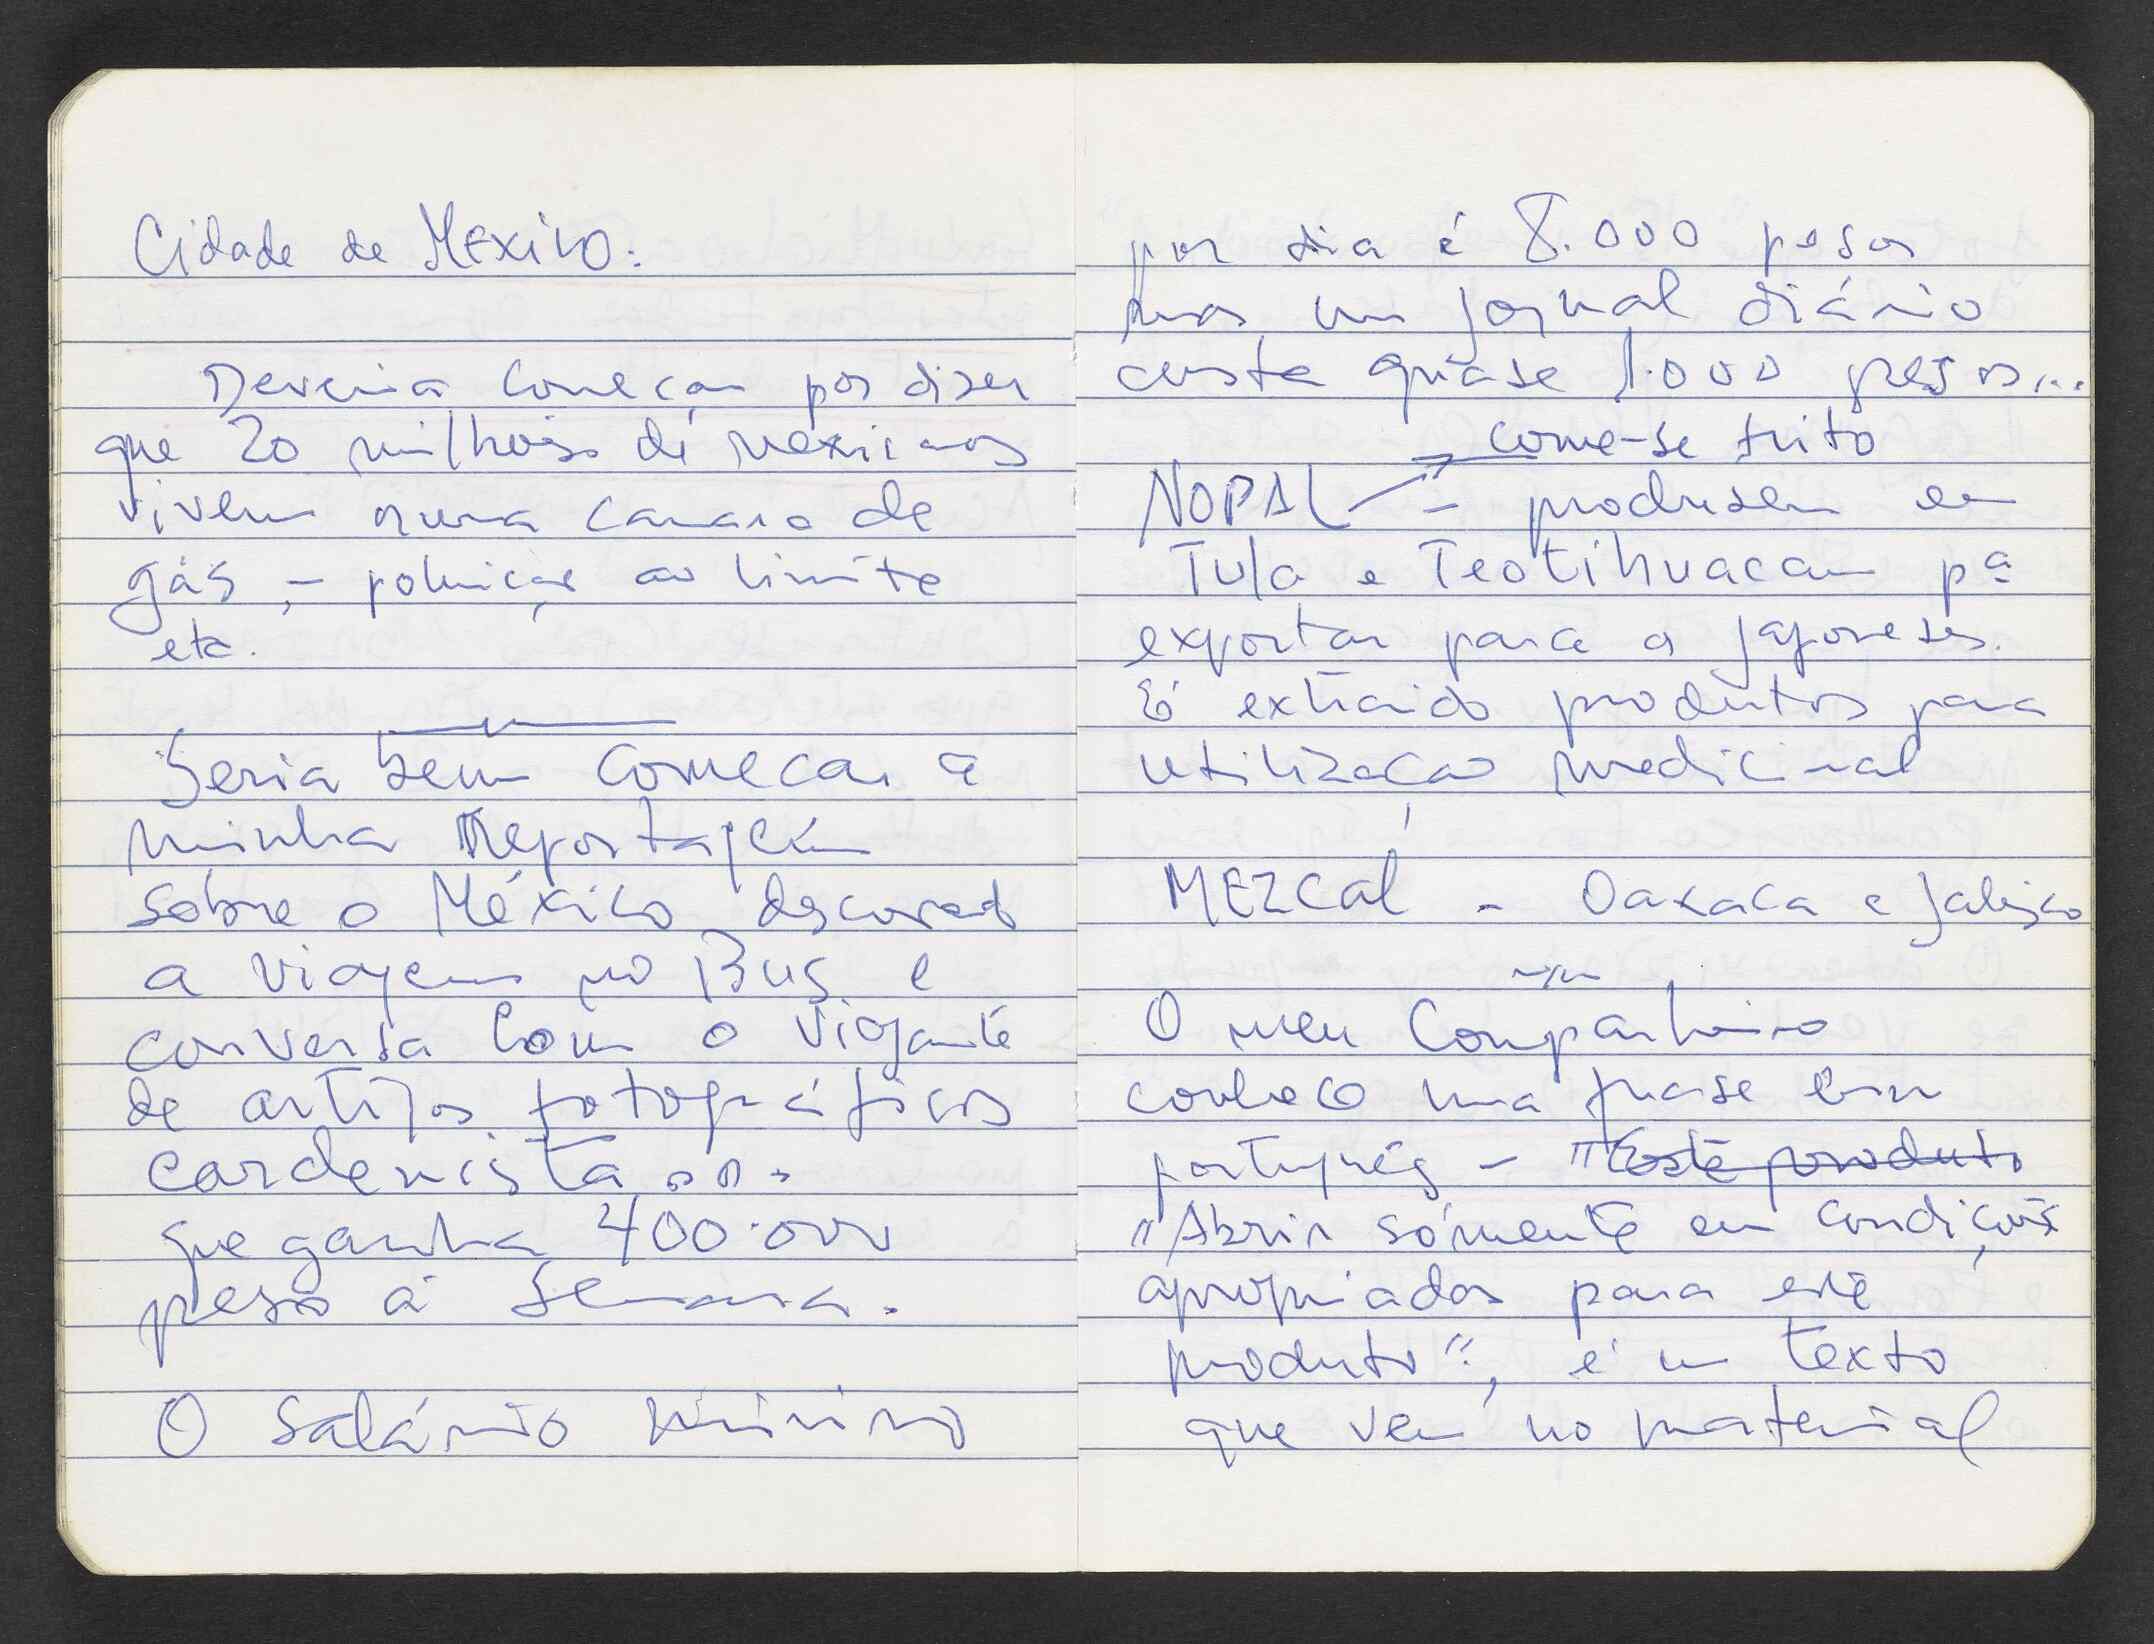 Cidade de México:
Deveria começar por dizer
que 20 milhões de mexicanos
vivem numa camara de
gás, - poluição ao limite
etc.
Seria bem começar a
minha Reportagem
sobre o México
a viagem no Bus e
conversa com o viajante
de artigos fotográficos
cardenista...
que ganha 400.000
pesos à semana.
O salário mínimo
por dia é 8.000 pesos
mas um jornal diário
custa quase 1.000 pesos...
come-se frito
NOPAL - produzem em
Tula e Teotihuacan pª
exportar para os japoneses.
É extraido produtos para
utilização medicinal
MEZCAL - Oaxaca e Jalisco
O meu companheiro
conhece uma frase em
português - "Este produto
"Abrir sómente em condições
apropriadas para este
produto", é um texto
que vem no material